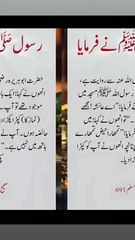 ﷺ نے فرمایا
رسول
اللہ عنہ سے روایت ہے،
رسول اللہ ﷺ مسجد میں
فرمایا: "اے عائشہ! مجھے
" تو انھوں نے کہا: میں
فرمایا: "تمھارا حیض تمھارے
چنانچہ انھوں نے آپ کو کپڑا
دیا۔
مسلم 691
حضرت ابو ہریرہ
انھوں نے کہا: ایک بار
موجود تھے تو آپ نے
(نماز کا) کپڑا پکڑا دو
حائضہ ہوں۔ آپ نے
ہاتھ میں نہیں ہے۔"
پکڑا